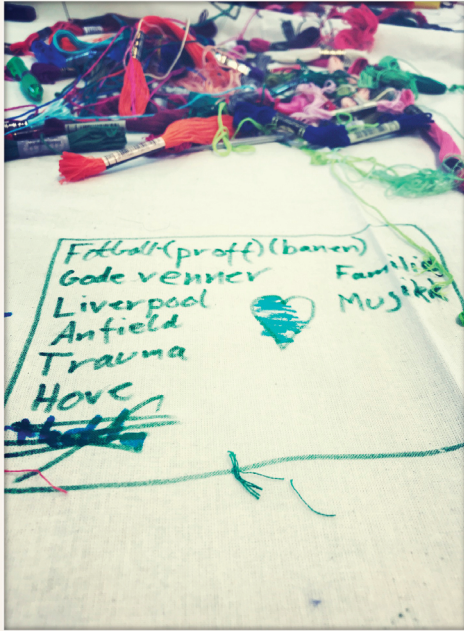 Fotball (proff) (banen)
Gode venner
Liverpool
Anfield
Trauma
Hove
Familie
Musikk